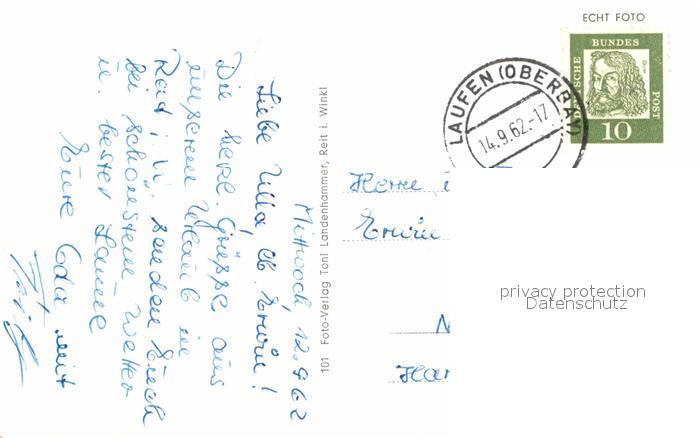 Mittwoch, 12.9.62
Liebe Ulla, lb. Erwin!
Die herzl. Grüsse aus
unserem Urlaub in
Reit i. W. senden Euch
bei schönstem Wetter
u. bester Laune
Eure
mit
101 Foto-Verlag Toni Landenhammer, Reit i. Winkl
ECHT FOTO
BUNDES
POST
10
LAUFEN (OBERBAY)
14.9.62-17
Herrn
Erwin
N
Ha
privacy protection
Datenschutz